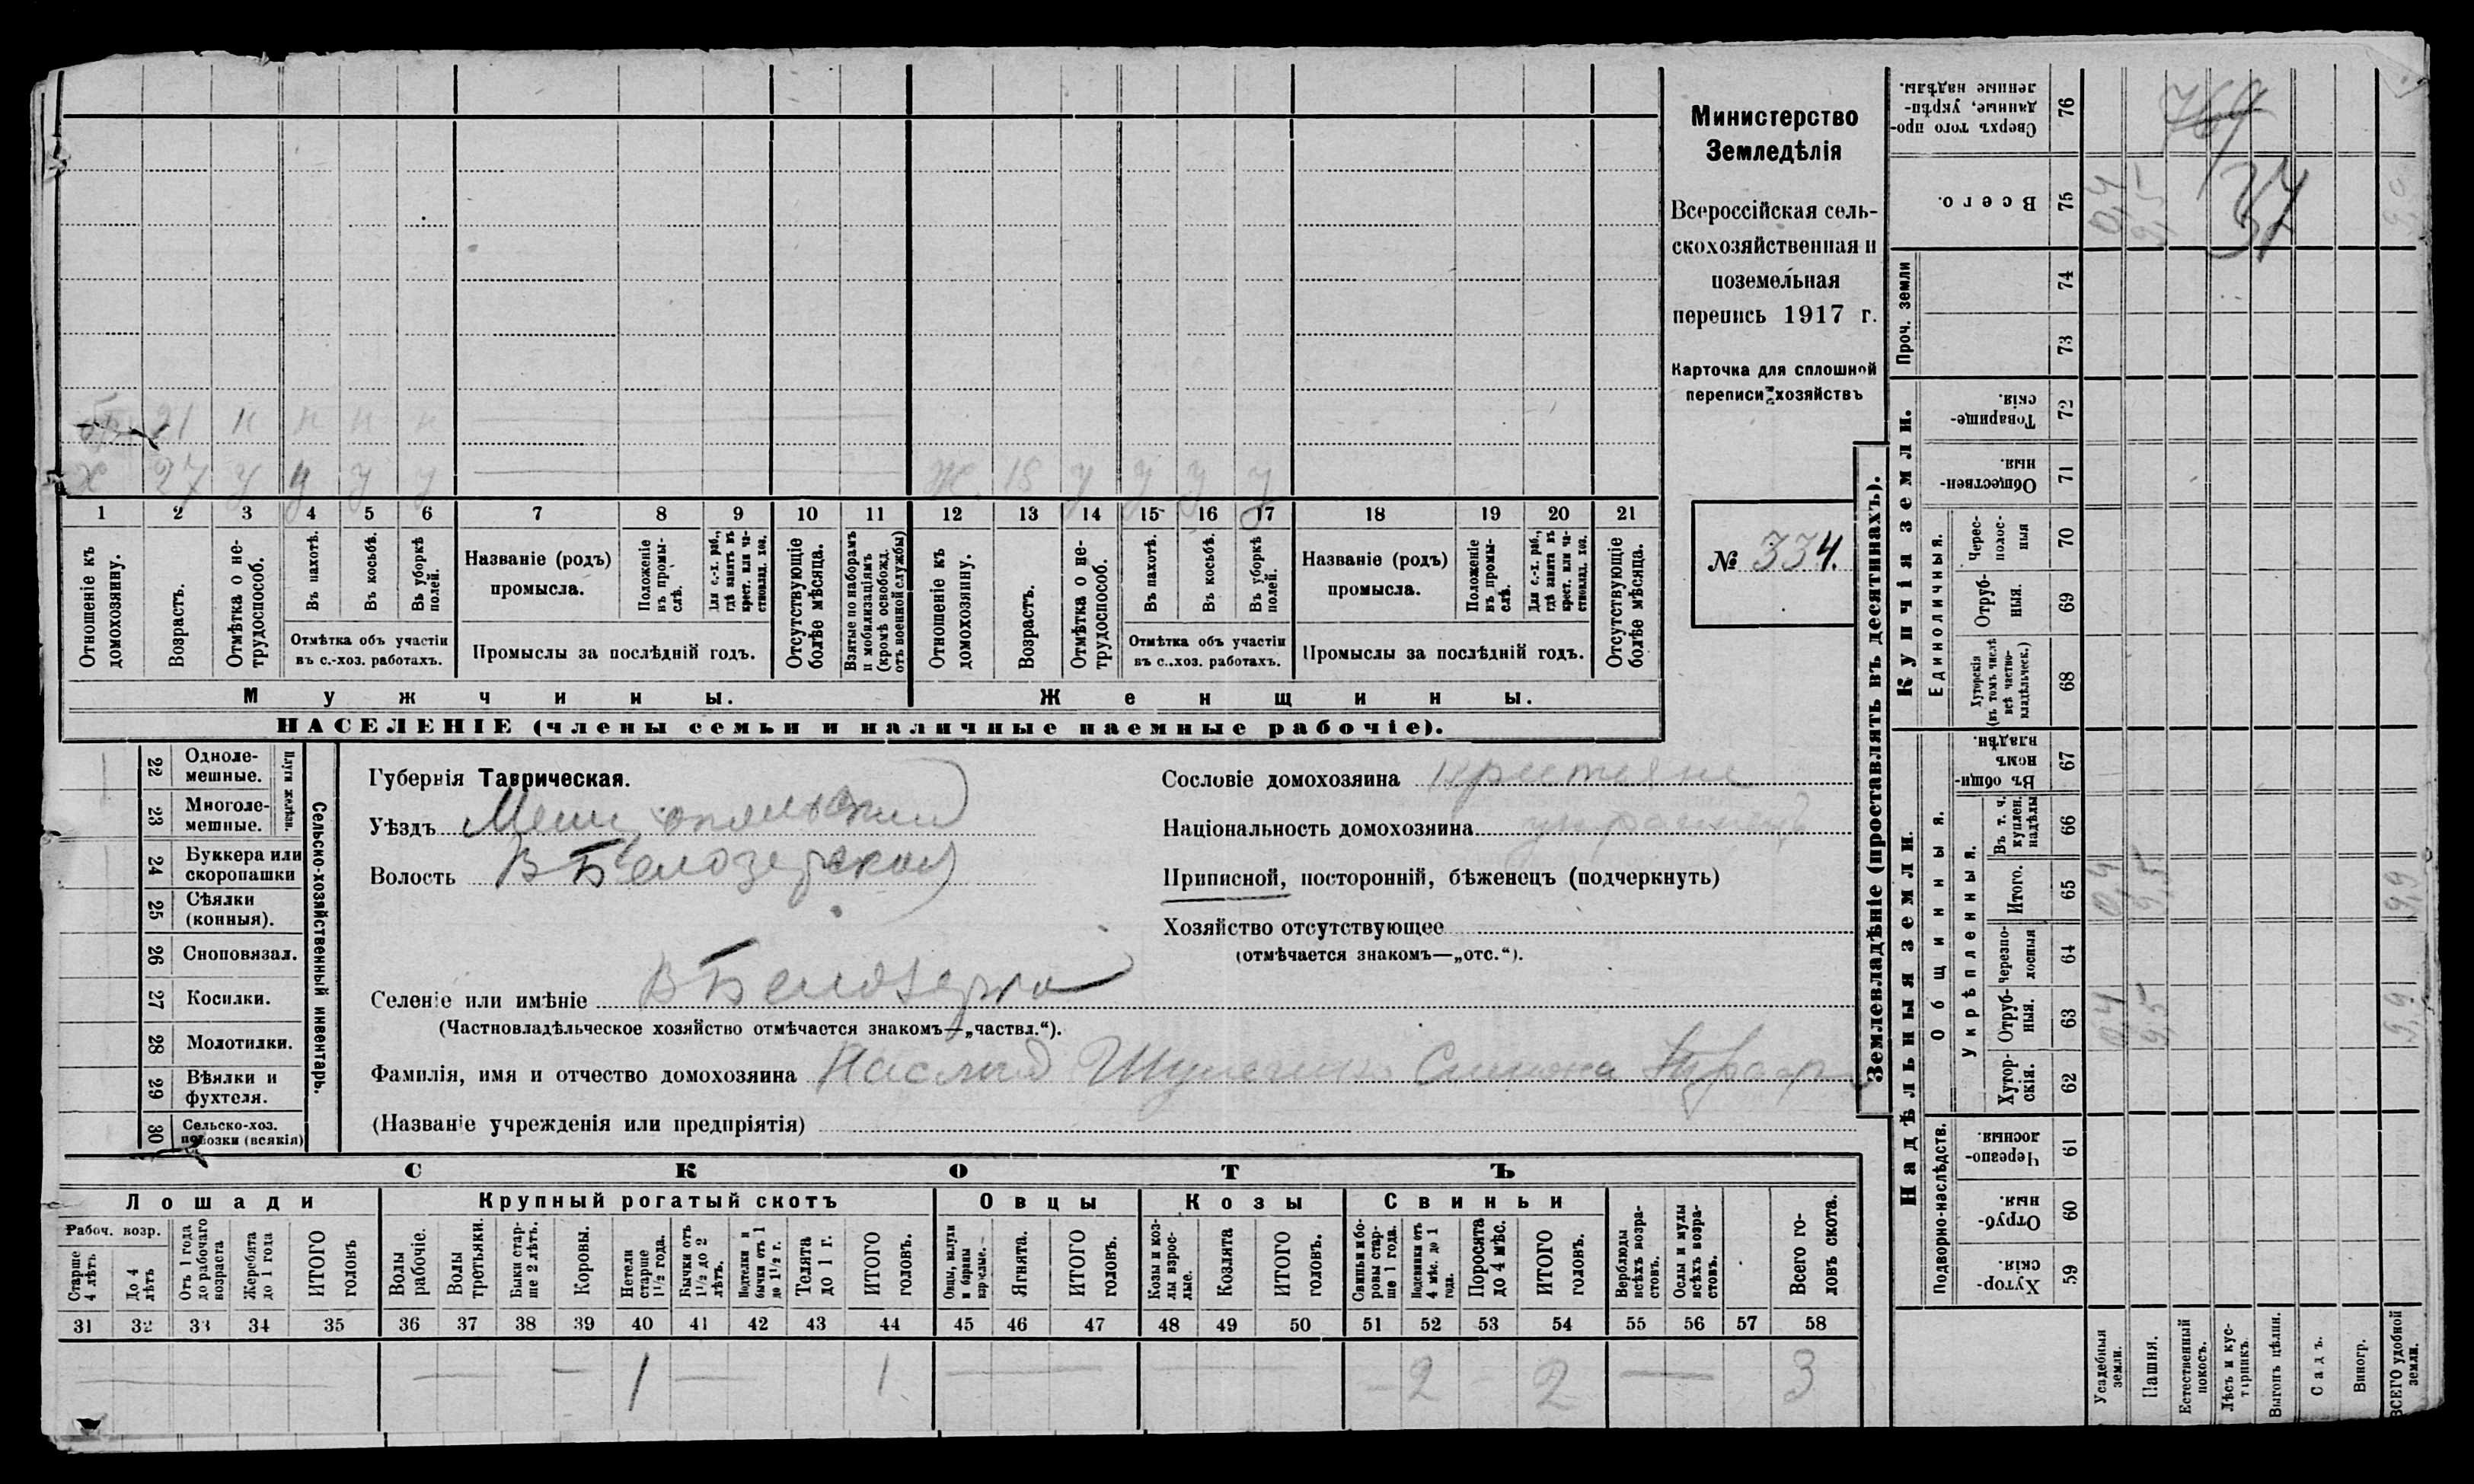 Министерство
Земледѣлія
Всероссійская сель-
скохозяйственная и
поземельная
перепись 1917 г.
Карточка для сплошной
переписи хозяйствъ
№ 334.
бр. 21 н н н н
х 27 у у у у
Ж. 18 у у у у
1 2 3 4 5 6 7 8 9 10 11 12 13 14 15 16 17 18 19 20 21
Отношеніе къ домохозяину.
Возрастъ.
Отмѣтка о не-трудоспособ.
Въ пахотѣ.
Въ косьбѣ.
Въ уборкѣ полей.
Отмѣтка объ участіи
въ с.-хоз. работахъ.
Названіе (родъ)
промысла.
Положеніе въ промы-слѣ.
Для с.-х. раб., гдѣ занятъ въ крест. или ча-стновлад. хоз.
Промыслы за послѣдній годъ.
Отсутствующіе болѣе мѣсяца.
Взятые по наборамъ и мобилизаціямъ (кромѣ освобожд. отъ военной службы)
Отношеніе къ домохозяину.
Возрастъ.
Отмѣтка о не-трудоспособ.
Въ пахотѣ.
Въ косьбѣ.
Въ уборкѣ полей.
Отмѣтка объ участіи
въ с..хоз. работахъ.
Названіе (родъ)
промысла.
Положеніе въ промы-слѣ.
Для с.-х. раб., гдѣ занята въ крест. или ча-стновлад. хоз.
Промыслы за послѣдній годъ.
Отсутствующіе болѣе мѣсяца.
Мужчины.
Женщины.
НАСЕЛЕНІЕ (члены семьи и наличные наемные рабочіе).
22 Одноле-мешные.
23 Многоле-мешные.
Плуги желѣзн.
24 Буккера или скоропашки
25 Сѣялки (конныя).
26 Сноповязал.
27 Косилки.
28 Молотилки.
29 Вѣялки и фухтеля.
30 Сельско-хоз. повозки (всякія)
Сельско-хозяйственный инвентарь.
Губернія Таврическая.
Уѣздъ Мелитопольскій
Волость В Бѣлозерская
Селеніе или имѣніе В Белозерка
(Частновладѣльческое хозяйство отмѣчается знакомъ—„частвл.“).
Фамилія, имя и отчество домохозяина
(Названіе учрежденія или предпріятія)
Сословіе домохозяина крестьяне
Національность домохозяина украинецъ
Приписной, посторонній, бѣженецъ (подчеркнуть)
Хозяйство отсутствующее
(отмѣчается знакомъ—„отс.“).
СКОТЪ
Лошади
Крупный рогатый скотъ
Овцы
Козы
Свиньи
Рабоч. возр.
Старше 4 лѣтъ
До 4 лѣтъ
Отъ 1 года до рабочаго возраста
Жеребята до 1 года
ИТОГО головъ
Волы рабочіе.
Волы третьяки.
Быки стар-ше 2 лѣтъ.
Коровы.
Нетели старше 1½ года.
Бычки отъ 1½ до 2 лѣтъ.
Подтелки и бычки отъ 1 до 1½ г.
Телята до 1 г.
ИТОГО головъ.
Овцы, валухи и бараны взрослые.
Ягнята.
ИТОГО головъ.
Козы и коз-лы взрос-лые.
Козлята
ИТОГО головъ.
Свиньи и бо-ровы стар-ше 1 года.
Подсвинки отъ 4 мѣс. до 1 года.
Поросята до 4 мѣс.
ИТОГО головъ.
Верблюды всѣхъ возра-стовъ.
Ослы и мулы всѣхъ возра-стовъ.
Всего го-ловъ скота.
31 32 33 34 35 36 37 38 39 40 41 42 43 44 45 46 47 48 49 50 51 52 53 54 55 56 57 58
1 1 2 2 3
Землевладѣніе (проставлять въ десятинахъ).
Сверхъ того про-данные, укрѣп-ленные надѣлы. 76
769
37
Всего. 75 0,4 9,5 9,9
Проч. земли
74
73
Купчія земли.
Товарище-скія. 72
Обществен-ныя. 71
Единоличныя.
Черес-полос-ныя 70
Отруб-ныя. 69
Хуторскія (въ томъ числѣ всѣ частно-владѣльческ.) 68
Надѣльныя земли.
Общинныя.
Въ общин-номъ владѣн. 67
Укрѣпленныя.
Въ т. ч. куплен. надѣлы 66
Итого. 65 0,4 9,5 9,9
Черезпо-лосныя 64
Отруб-ныя. 63 0,4 9,5 9,9
Хутор-скія. 62
Подворно-наслѣдств.
Черезпо-лосныя. 61
Отруб-ныя. 60
Хутор-скія. 59
Усадебныя земли.
Пашня.
Естественный покосъ.
Лѣсъ и кус-тарникъ.
Выгонъ цѣлин.
Садъ.
Виногр.
ВСЕГО удобной земли.